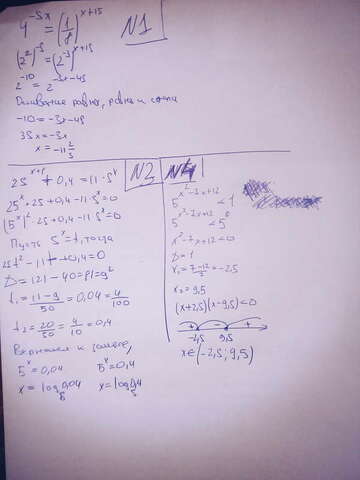 N1
4^-5x = (1/8)^x+15
(2²)^-5 = (2^-3)^x+15
2^-10 = 2^-3x-45
Основание равны, равны и степени
-10=-3x-45
35x=-3x
x=-11 2/3
N3
25^x+1 + 0,4 = 11·5^x
25^x · 25 + 0,4 - 11·5^x = 0
(5^x)² · 25 + 0,4 - 11·5^x = 0
Пусть 5^x = t, тогда
25t² - 11t + 0,4 = 0
D = 121 - 40 = 81 = 9²
t₁ = (11-9)/50 = 0,04 = 4/100
t₂ = 20/50 = 4/10 = 0,4
Вернемся к замене,
5^x = 0,04 5^x = 0,4
x = log₅0,04 x = log₅0,4
N4
5^x²-7x+12 < 1
5^x²-7x+12 < 5^0
x²-7x+12<0
D=1
x₁ = (7-12)/2 = -2,5
x₂ = 9,5
(x+2,5)(x-9,5)<0
+ - +
-2,5 9,5
x∈(-2,5; 9,5)